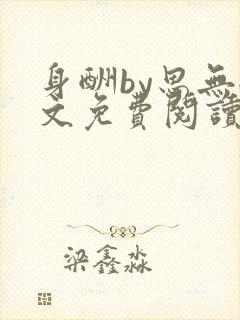 身酬by思無
文免費閱讀
梁鑫淼